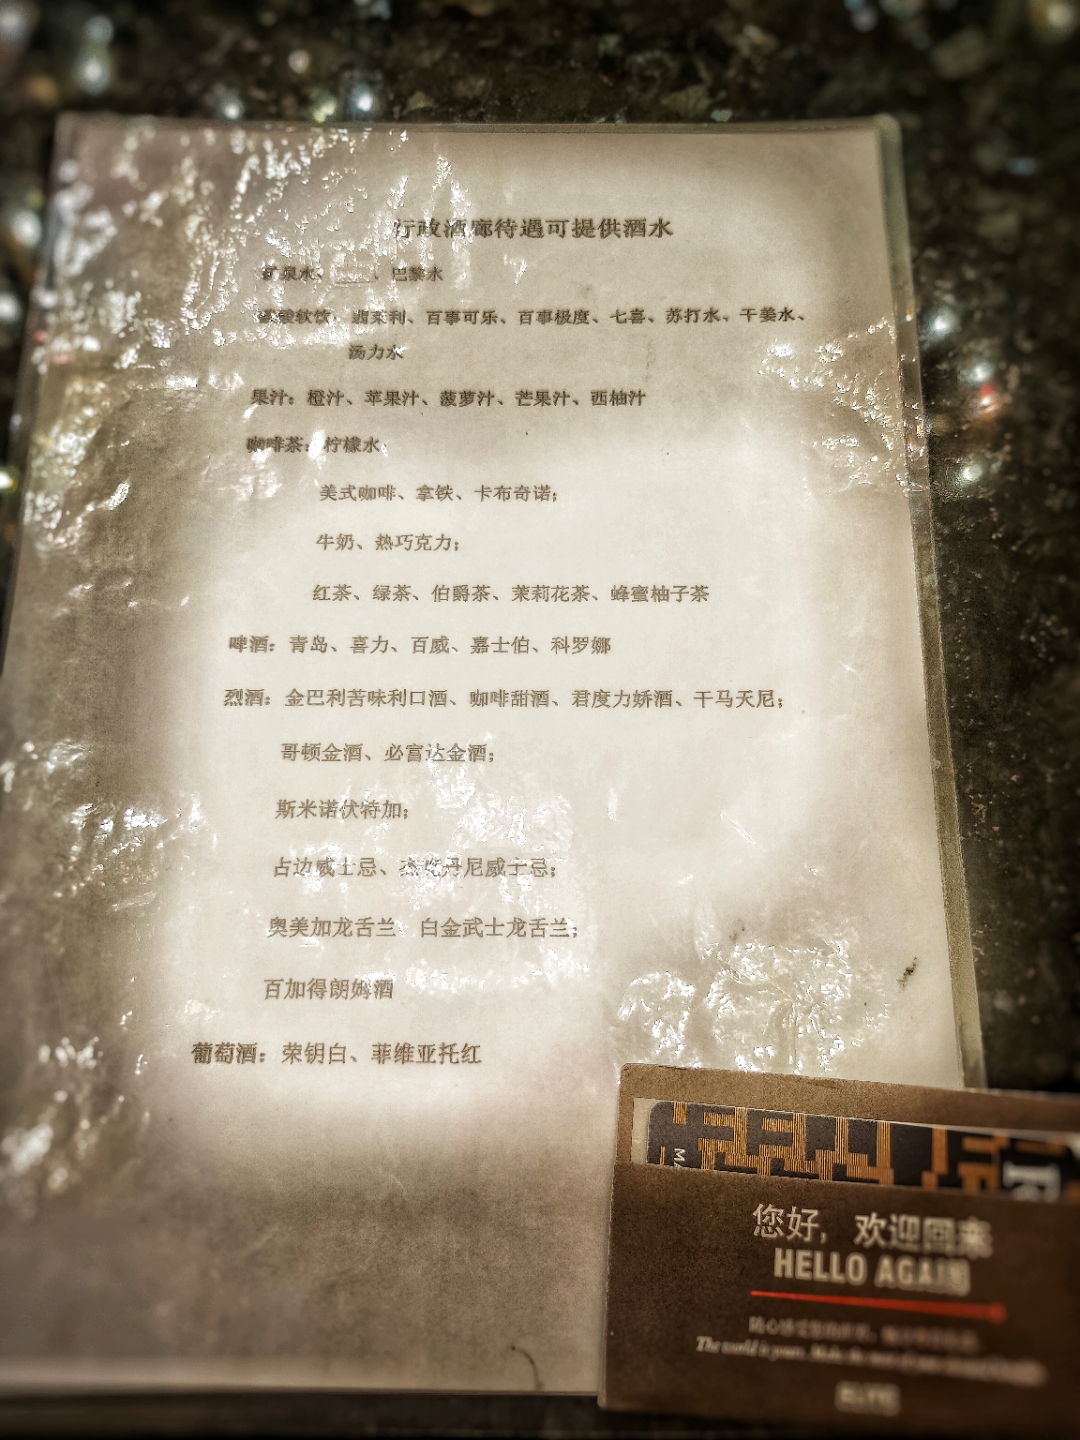 行政酒廊待遇可提供酒水
矿泉水、巴黎水
碳酸软饮：翡莱利、百事可乐、百事极度、七喜、苏打水、干姜水、
汤力水
果汁：橙汁、苹果汁、菠萝汁、芒果汁、西柚汁
咖啡茶：柠檬水
美式咖啡、拿铁、卡布奇诺；
牛奶、热巧克力；
红茶、绿茶、伯爵茶、茉莉花茶、蜂蜜柚子茶
啤酒：青岛、喜力、百威、嘉士伯、科罗娜
烈酒：金巴利苦味利口酒、咖啡甜酒、君度力娇酒、干马天尼；
哥顿金酒、必富达金酒；
斯米诺伏特加；
占边威士忌、杰克丹尼威士忌；
奥美加龙舌兰 白金武士龙舌兰；
百加得朗姆酒
葡萄酒：荣钥白、菲维亚托红
您好，欢迎回来
HELLO AGAIN
The world is yours.